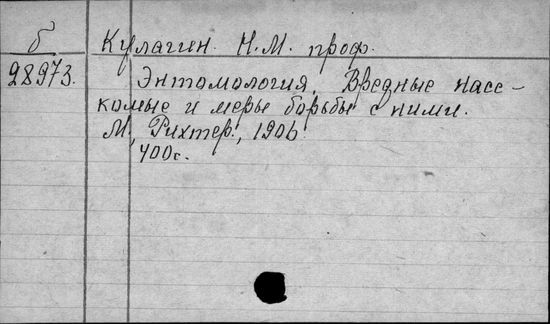 б Кулагин. Н.М. проф.
28973. Энтомология. Вредные насе-
комые и меры борьбы с ними.
М., Рихтер., 1906
400 с.